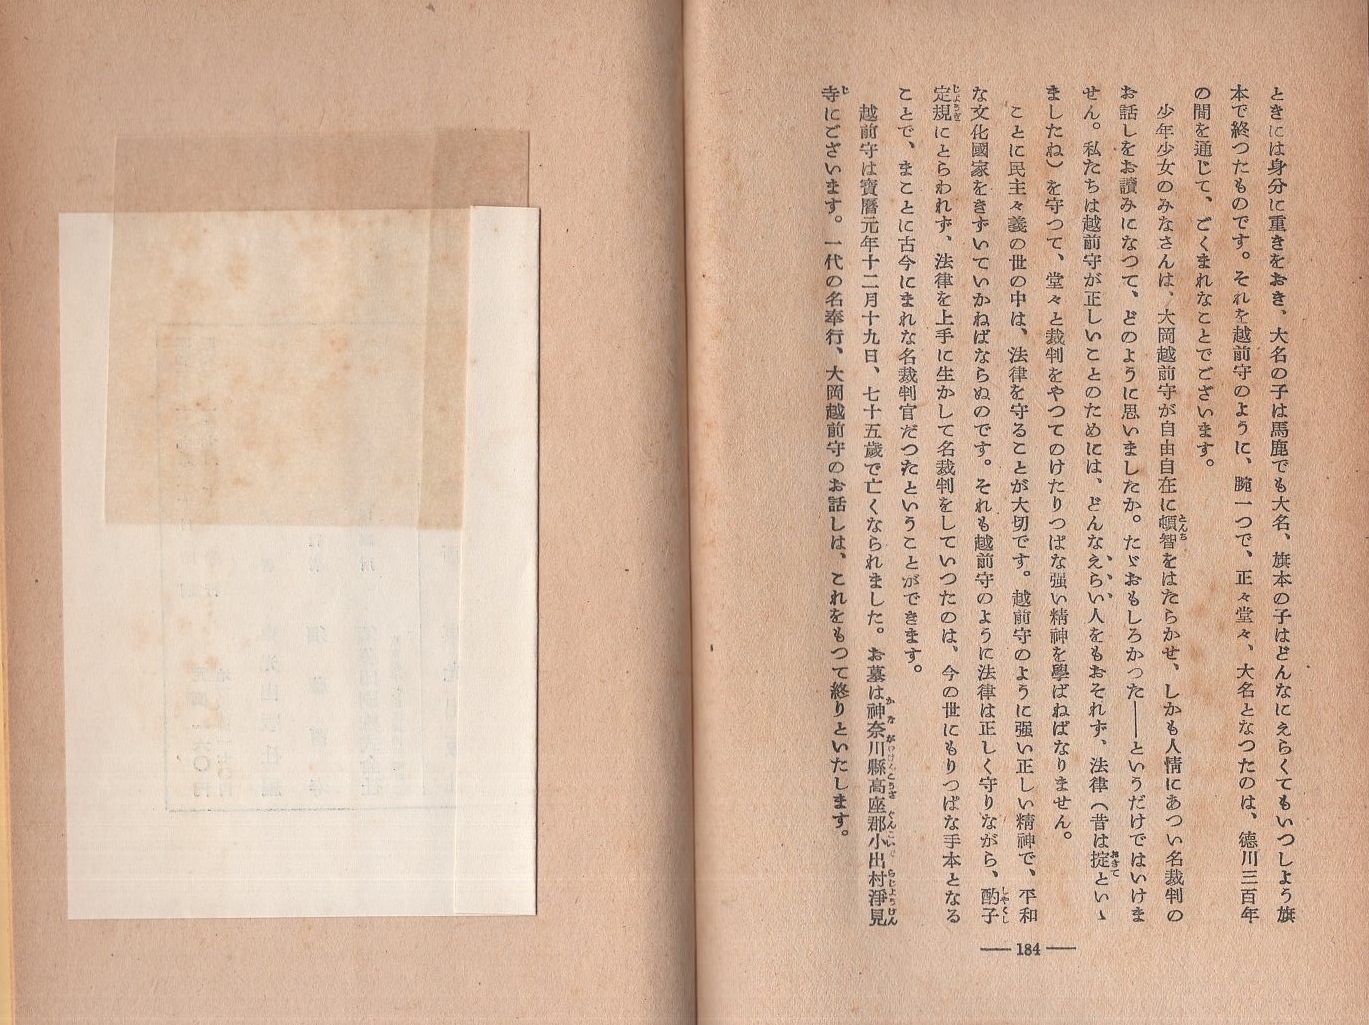 ときには身分に重きをおき、大名の子は馬鹿でも大名、旗本の子はどんなにえらくてもいつしよう旗
本で終つたものです。それを越前守のように、腕一つで、正々堂々、大名となつたのは、德川三百年
の間を通じて、ごくまれなことでございます。
少年少女のみなさんは、大岡越前守が自由自在に頓智をはたらかせ、しかも人情にあつい名裁判の
お話しをお讀みになつて、どのように思いましたか。たゞおもしろかつた――というだけではいけま
せん。私たちは越前守が正しいことのためには、どんなえらい人をもおそれず、法律（昔は掟といゝ
ましたね）を守つて、堂々と裁判をやつてのけたりつぱな强い精神を學ばねばなりません。
ことに民主々義の世の中は、法律を守ることが大切です。越前守のように强い正しい精神で、平和
な文化國家をきずいていかねばならぬのです。それも越前守のように法律は正しく守りながら、酌子
定規にとらわれず、法律を上手に生かして名裁判をしていつたのは、今の世にもりつぱな手本となる
ことで、まことに古今にまれな名裁判官だつたということができます。
越前守は寶曆元年十二月十九日、七十五歲で亡くなられました。お墓は神奈川縣高座郡小出村淨見
寺にございます。一代の名奉行、大岡越前守のお話しは、これをもつて終りといたします。
― 184 ―